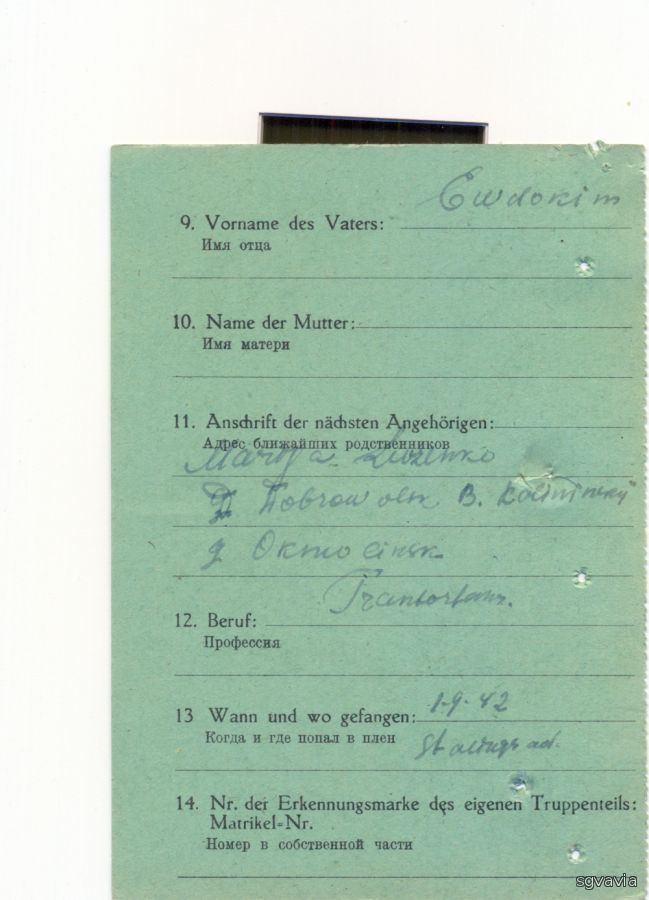 Ewdokim
9. Vorname des Vaters:
Имя отца
10. Name der Mutter:
Имя матери
11. Anschrift der nächsten Angehörigen:
Адрес ближайших родственников
Marija
B.
g
12. Beruf:
Профессия
1.9.42
13 Wann und wo gefangen:
Когда и где попал в плен
Stalingrad.
14. Nr. der Erkennungsmarke des eigenen Truppenteils:
Matrikel=Nr.
Номер в собственной части
sgvavia